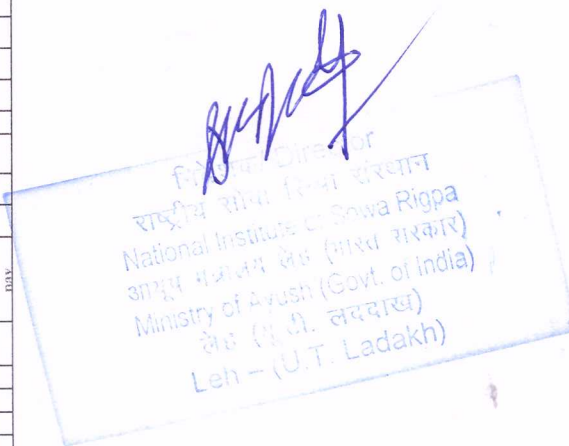 Director
राष्ट्रीय सोवा रिग्पा संस्थान
National Institute of Sowa Rigpa
आयुष मंत्रालय लेह (भारत सरकार)
Ministry of Ayush (Govt. of India)
लेह (यू.टी. लद्दाख)
Leh – (U.T. Ladakh)